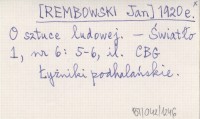 [REMBOWSKI Jan] 1920 e.x
O sztuce ludowej. – Światło
1, nr 6: 5-6, il. CBG
Łyżniki podhalańskie.